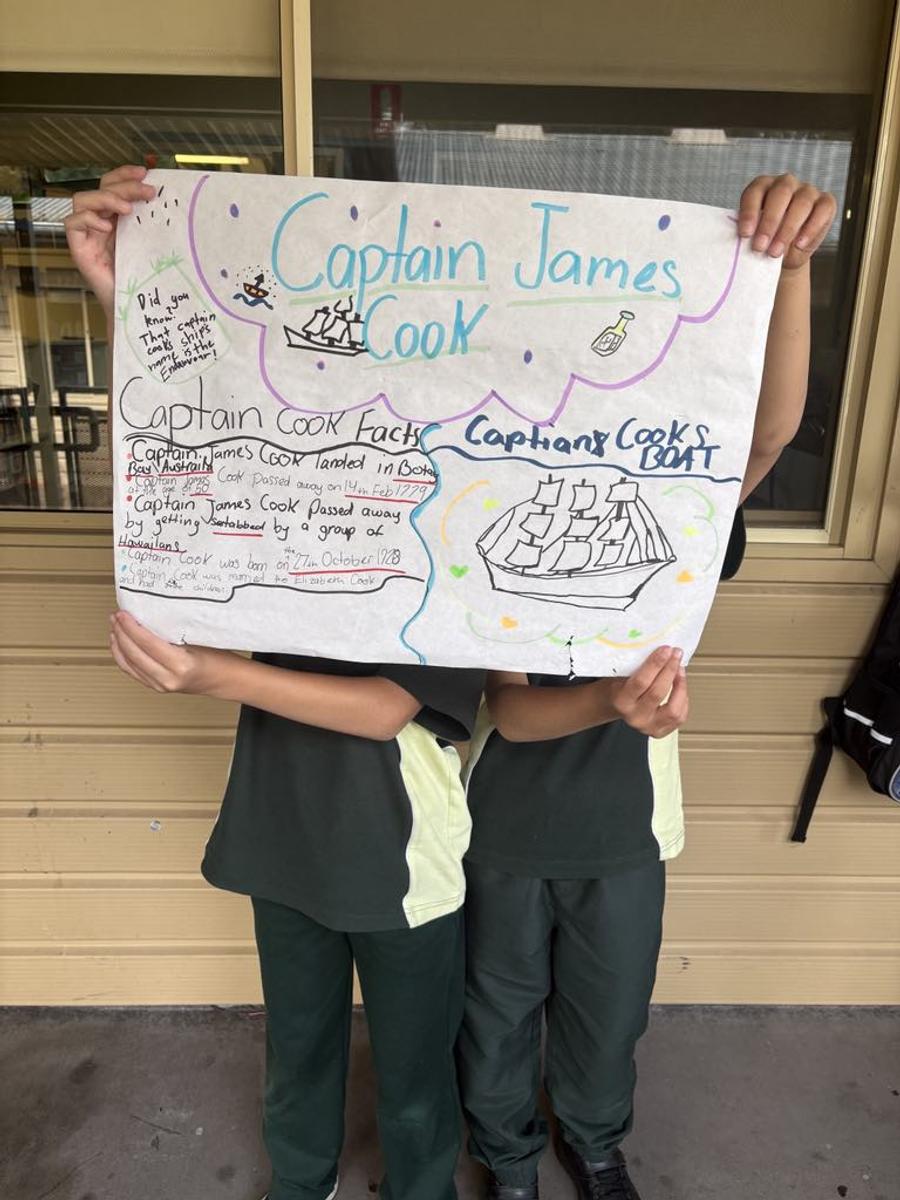 Captain James
Cook
Did you
know?
That captain
cooks ship's
name is the
Endeavour!
Captain Cook Facts
Captain James Cook landed in Botany
Bay Australia
Captain James Cook passed away on 14th Feb 1779
at the age of 50
Captain James Cook Passed away
by getting sstabbed by a group of
Hawaiians
Captain Cook was born on the 27th October 1728
Captain Cook was married the Elizabeth Cook
and had children
Captians Cooks
BOAT